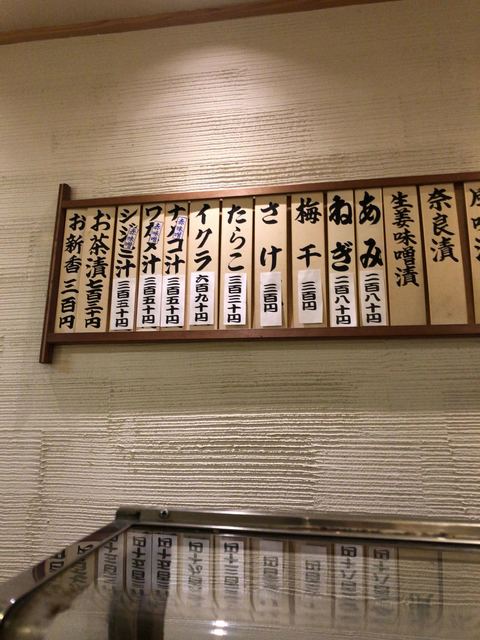 奈良漬
生姜味噌漬
あみ 二百八十円
ねぎ 二百八十円
梅干 三百円
さけ 三百円
たらこ 三百三十円
イクラ 六百九十円
ナメコ汁 赤味噌 三百五十円
ワカメ汁 赤味噌 三百五十円
シジミ汁 赤味噌 三百五十円
お茶漬 七百三十円
お新香 三百円